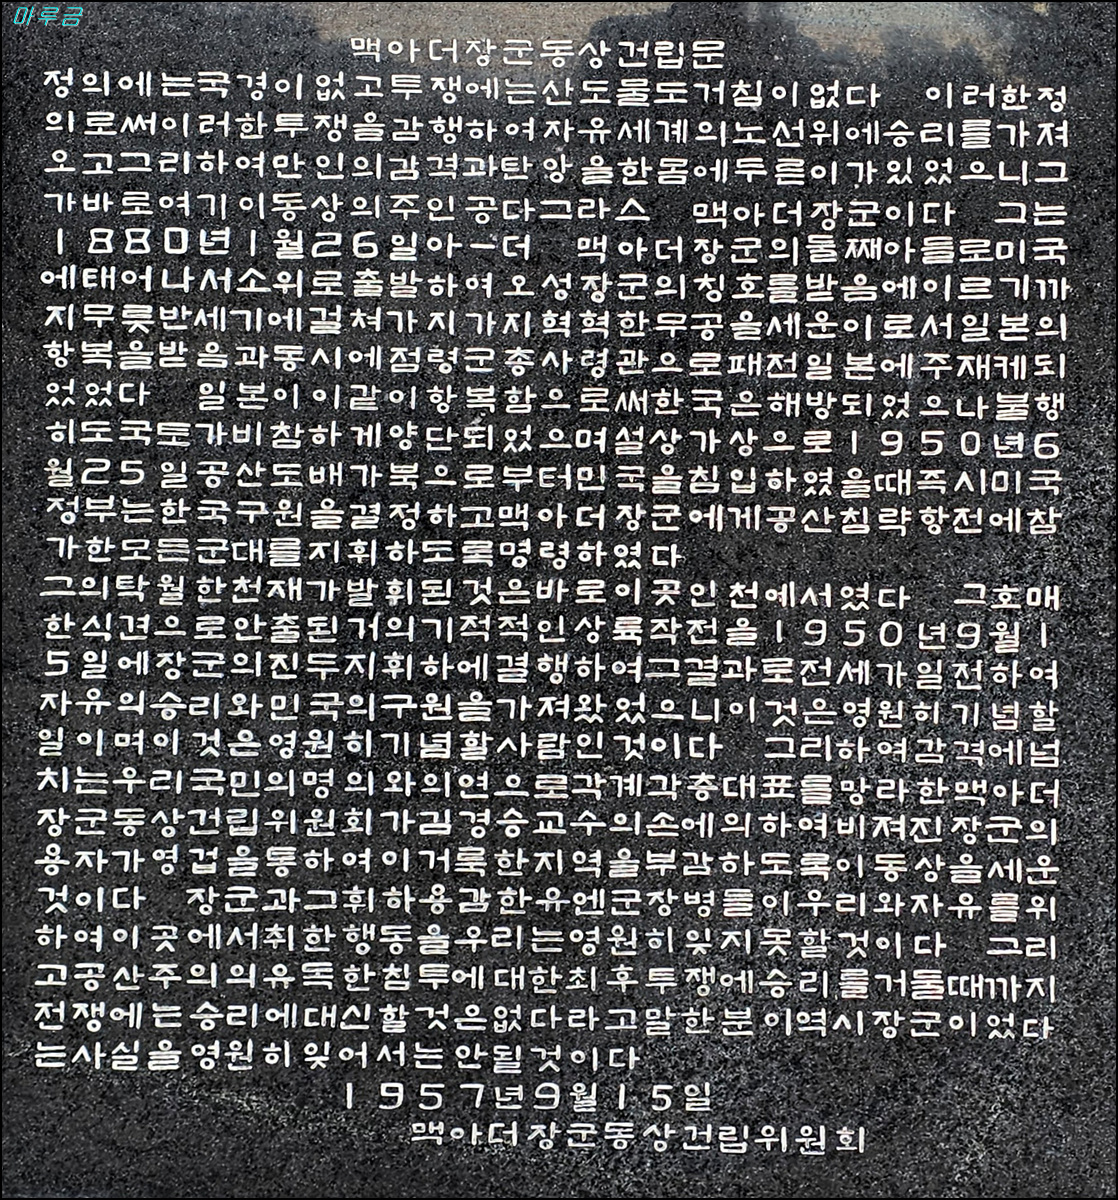 마루금
맥아더장군동상건립문
정의에는국경이없고투쟁에는산도물도거침이없다 이러한정
의로써이러한투쟁을감행하여자유세계의노선위에승리를가져
오고그리하여만인의감격과탄앙을한몸에두른이가있었으니그
가바로여기이동상의주인공다그라스 맥아더장군이다 그는
1880년1월26일아-더 맥아더장군의둘째아들로미국
에태어나서소위로출발하여오성장군의칭호를받음에이르기까
지무릇반세기에걸쳐가지가지혁혁한무공을세운이로서일본의
항복을받음과동시에점령군총사령관으로패전일본에주재케되
었었다 일본이이같이항복함으로써한국은해방되었으나불행
히도국토가비참하게양단되었으며설상가상으로1950년6
월25일공산도배가북으로부터민국을침입하였을때즉시미국
정부는한국구원을결정하고맥아더장군에게공산침략항전에참
가한모든군대를지휘하도록명령하였다
그의탁월한천재가발휘된것은바로이곳인천에서였다 그호매
한식견으로안출된거의기적적인상륙작전을1950년9월1
5일에장군의진두지휘하에결행하여그결과로전세가일전하여
자유의승리와민국의구원을가져왔었으니이것은영원히기념할
일이며이것은영원히기념할사람인것이다 그리하여감격에넘
치는우리국민의명의와의연으로각계각층대표를망라한맥아더
장군동상건립위원회가김경승교수의손에의하여비져진장군의
용자가영겁을통하여이거룩한지역을부감하도록이동상을세운
것이다 장군과그휘하용감한유엔군장병들이우리와자유를위
하여이곳에서취한행동을우리는영원히잊지못할것이다 그리
고공산주의의유독한침투에대한최후투쟁에승리를거둘때까지
전쟁에는승리에대신할것은없다라고말한분이역시장군이었다
는사실을영원히잊어서는안될것이다
1957년9월15일
맥아더장군동상건립위원회